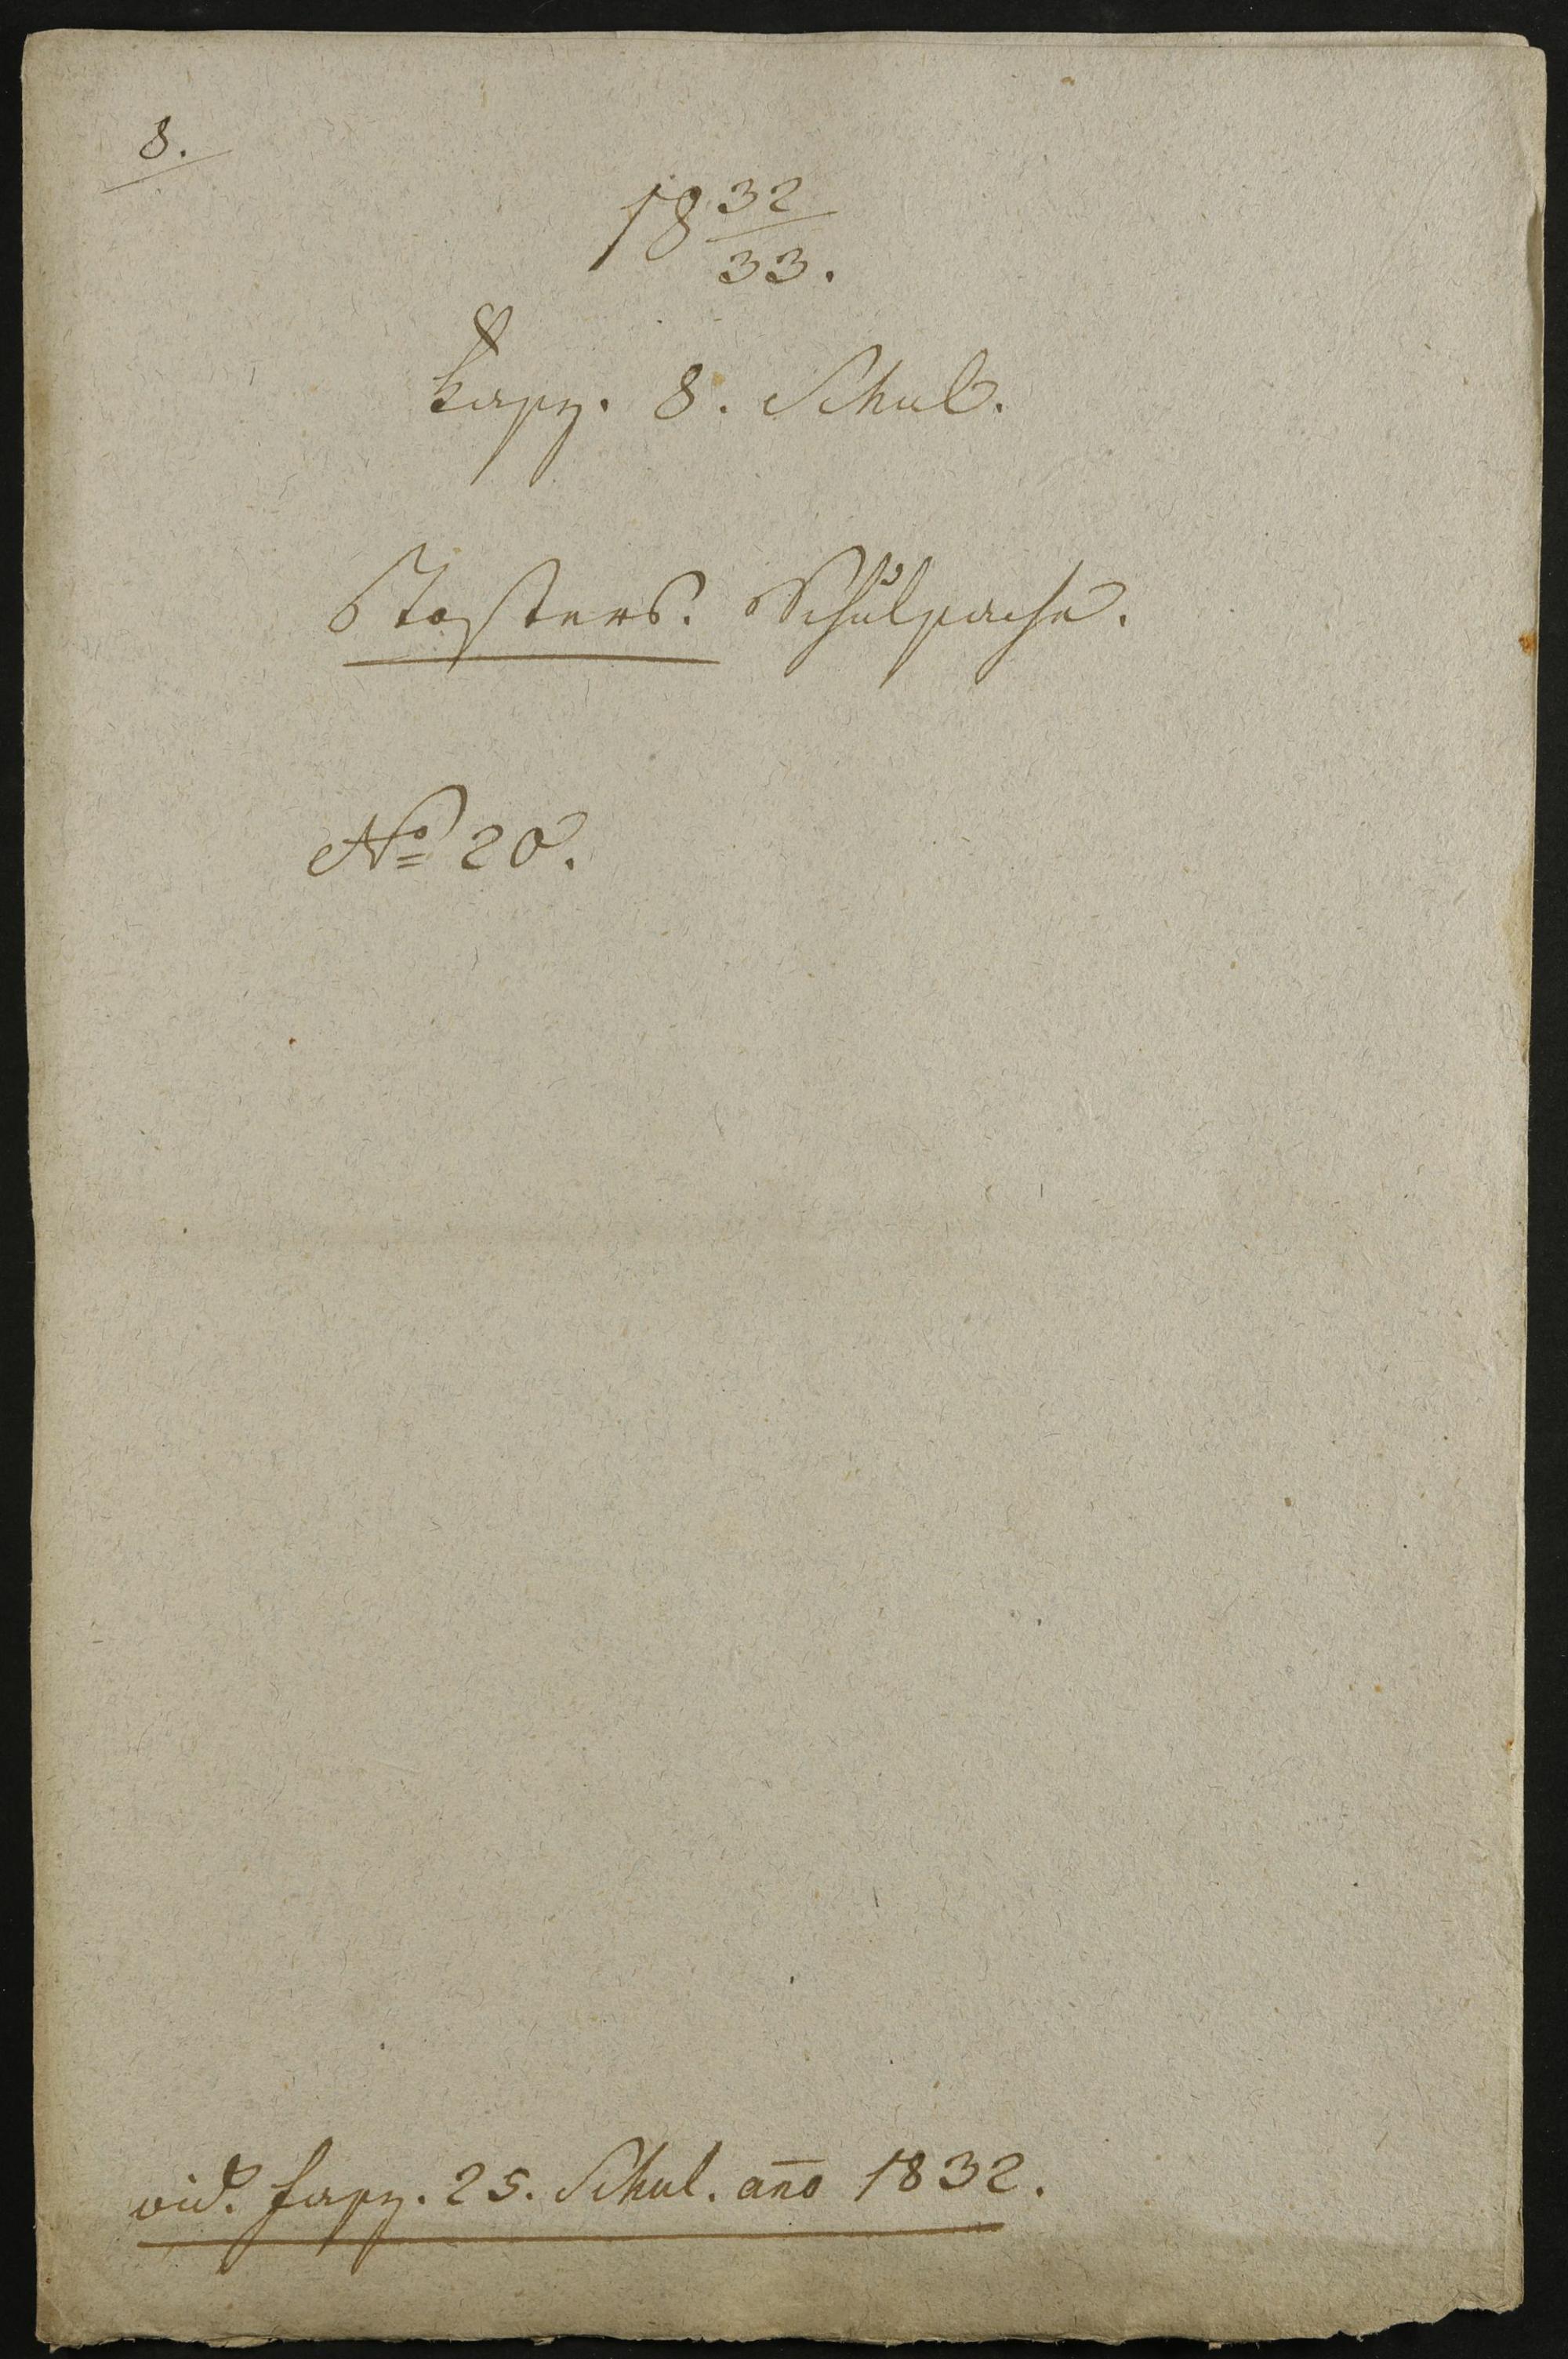 8.
18 32/33.
Fasz. 8. Schul.
Stasters. Schulsache.
No 20.
vid. fasz. 25. Schul. año 1832.